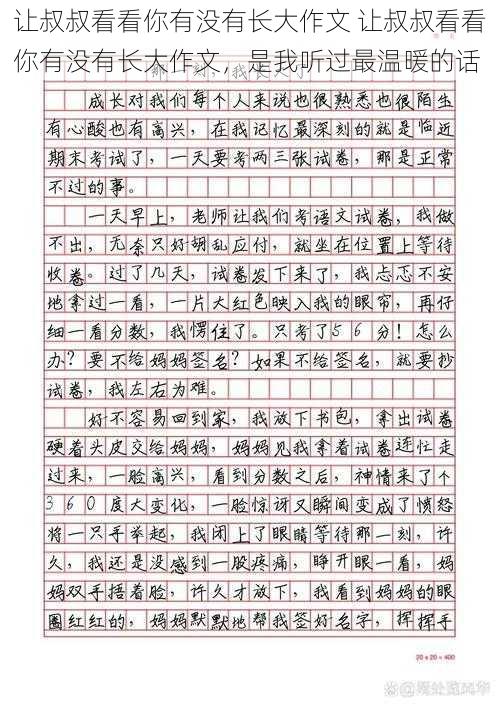 让叔叔看看你有没有长大作文 让叔叔看看
你有没有长大作文，是我听过最温暖的话
成长对我们每个人来说也很熟悉也很陌生
有心酸也有高兴，在我记忆最深刻的就是临近
期末考试了，一天要考两三张试卷，那是正常
不过的事。
一天早上，老师让我们考语文试卷，我做
不出，无奈只好胡乱应付，就坐在位置上等待
收卷。过了几天，试卷发下来了，我忐忑不安
地拿过一看，一片大红色映入我的眼帘，再仔
细一看分数，我愣住了。只考了56分！怎么
办？要不给妈妈签名？如果不给签名，就要抄
试卷，我左右为难。
好不容易回到家，我放下书包，拿出试卷
硬着头皮交给妈妈，妈妈见我拿着试卷连忙走
过来，一脸高兴，看到分数之后，神情来了个
360度大变化，一脸惊讶又瞬间变成了愤怒
将一只手举起，我闭上了眼睛等待那一刻，许
久，我还是没感到一股疼痛，睁开眼一看，妈
妈双手捂着脸，许久才放下，我看到妈妈的眼
圈红红的，妈妈默默地帮我签好名字，挥挥手
20 x 20 = 400